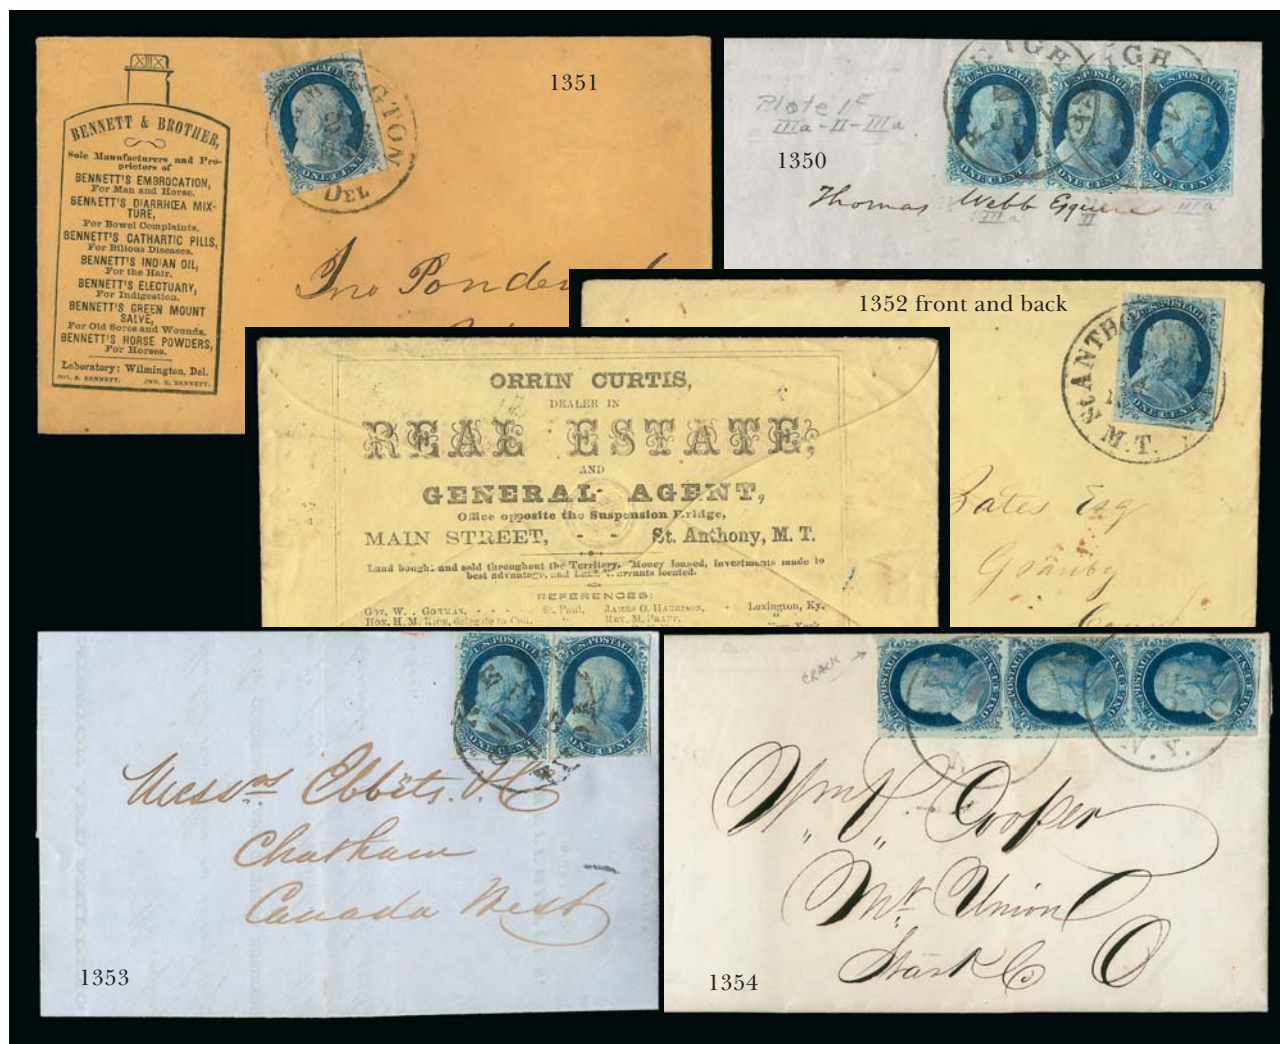 1351
BENNETT & BROTHER,
Sole Manufacturers and Pro-
prietors of
BENNETT'S EMBROCATION,
For Man and Horse.
BENNETT'S DIARRHŒA MIX-
TURE,
For Bowel Complaints.
BENNETT'S CATHARTIC PILLS,
For Bilious Diseases.
BENNETT'S INDIAN OIL,
For the Hair.
BENNETT'S ELECTUARY,
For Indigestion.
BENNETT'S GREEN MOUNT
SALVE,
For Old Sores and Wounds.
BENNETT'S HORSE POWDERS,
For Horses.
Laboratory: Wilmington, Del.
U.S. POSTAGE
ONE CENT
GTON
DEL
Jno Ponder
1350
Plate 1E
IIIa - II - IIIa
U.S. POSTAGE U.S. POSTAGE U.S. POSTAGE
ONE CENT ONE CENT ONE CENT
Thomas Webb Esquire
IIIa II IIIa
1352 front and back
St ANTHO
M.T.
ONE CENT
Bates Esq
Granby
ORRIN CURTIS,
DEALER IN
REAL ESTATE,
AND
GENERAL AGENT,
Office opposite the Suspension Bridge,
MAIN STREET, - - St. Anthony, M. T.
Land bought and sold throughout the Territory. Money loaned, investments made to
best advantage, and Land Warrants located.
REFERENCES:
St. Paul, JAMES O. HARRISON, - Lexington, Ky.
HON. H. M. RICE, REV. M. New York
1353
U.S. POSTAGE U.S. POSTAGE
ONE CENT ONE CENT
Messrs. Ebbits
Chatham
Canada West
1354
CRACK
U.S. POSTAGE U.S. POSTAGE U.S. POSTAGE
ONE CENT ONE CENT ONE CENT
N.Y.
Wm. Cooper
Mt. Union
Stark Co O